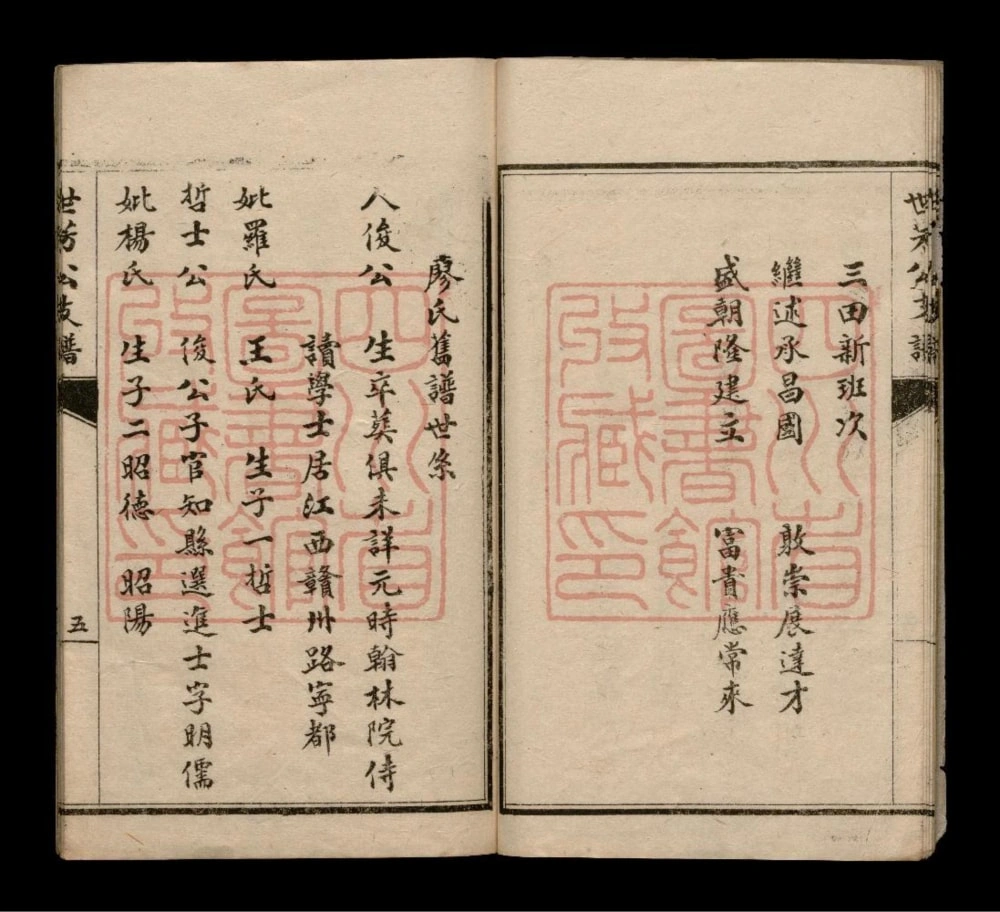 世芳公支譜
三田新班次
繼述承昌國 敦崇展達才
盛朝隆建立 富貴應常來
四川省
圖書館
收藏印
廖氏舊譜世系
人俊公 生卒葬俱未詳元時翰林院侍
讀學士居江西贛州路寧都
妣羅氏 王氏 生子一哲士
哲士公 俊公子官知縣選進士字明儒
妣楊氏 生子二昭德 昭陽
四川省
圖書館
收藏印
世芳公支譜
五